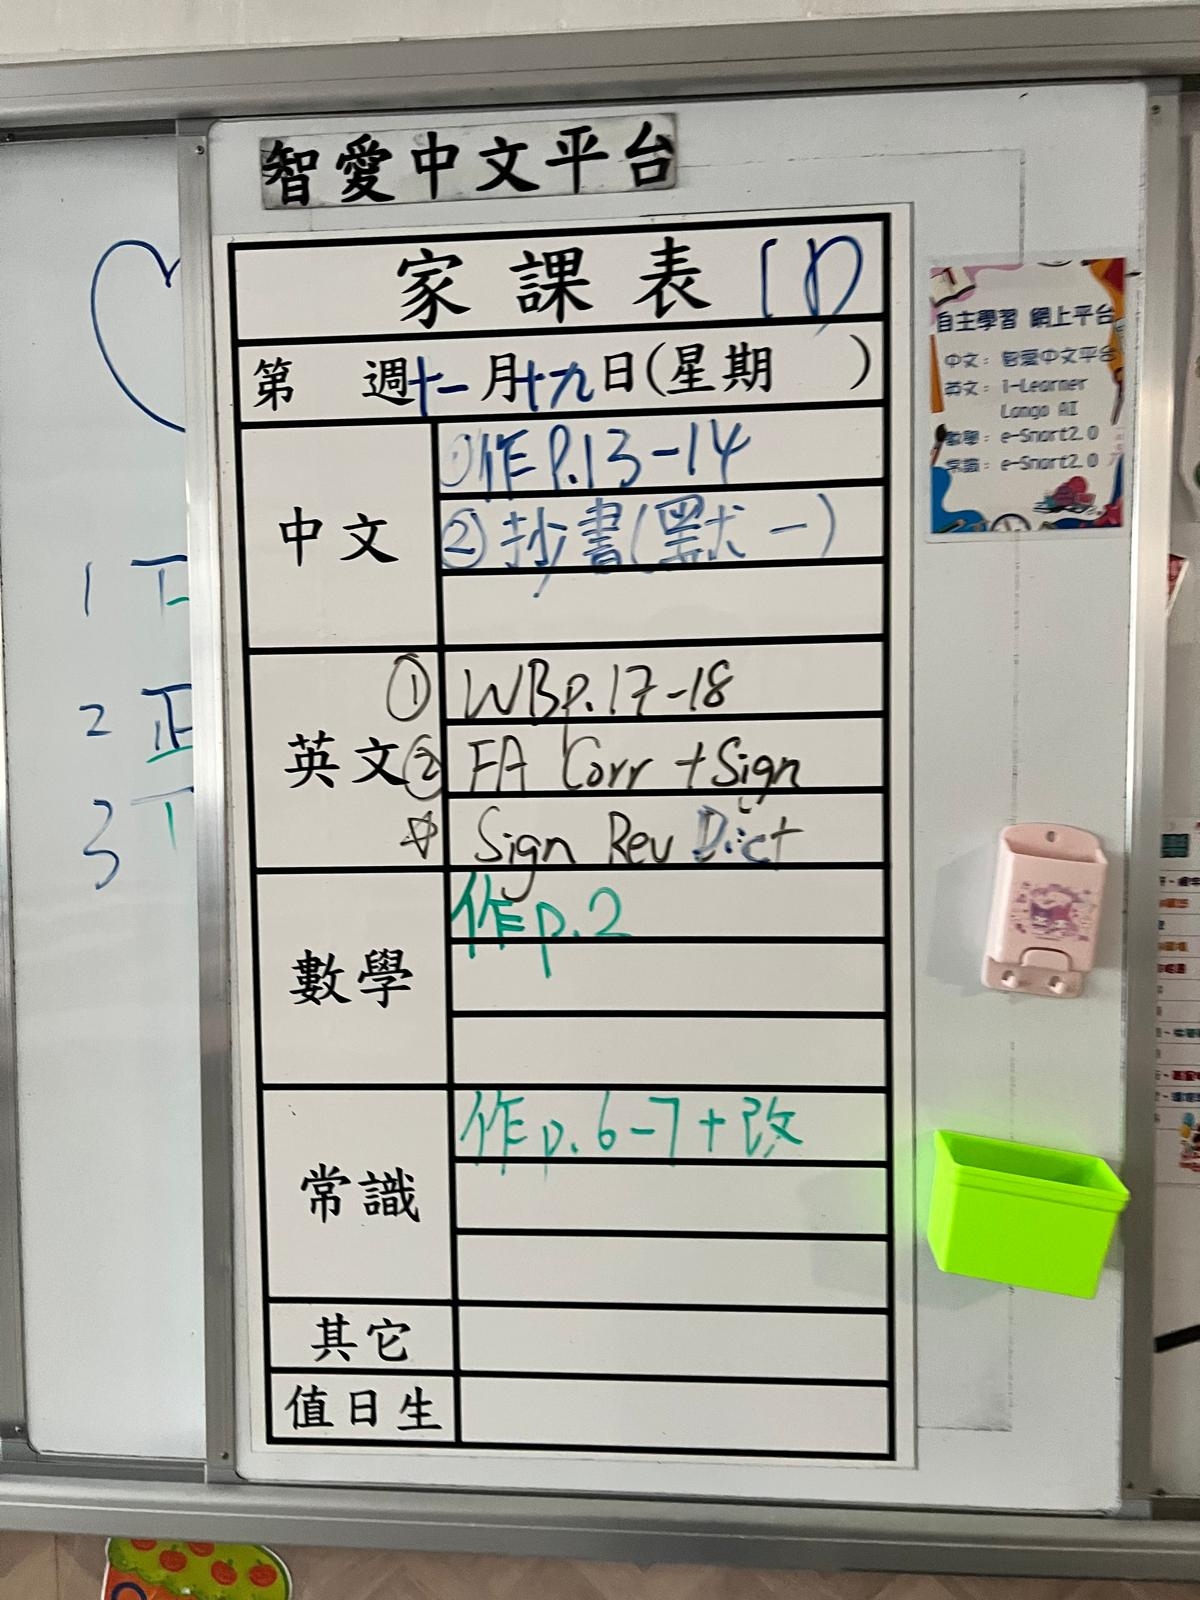 智愛中文平台
家課表
第 週十一月十九日(星期 )
中文
①作P.13-14
②抄書(默一)
英文
① WBp.17-18
② FA Corr + Sign
☆ Sign Rev Dict
數學
作p.2
常識
作p.6-7+改
其它
值日生
自主學習 網上平台
中文：智愛中文平台
英文：i-Learner
Lango AI
數學：e-Smart2.0
常識：e-Smart2.0
1
2 正
3